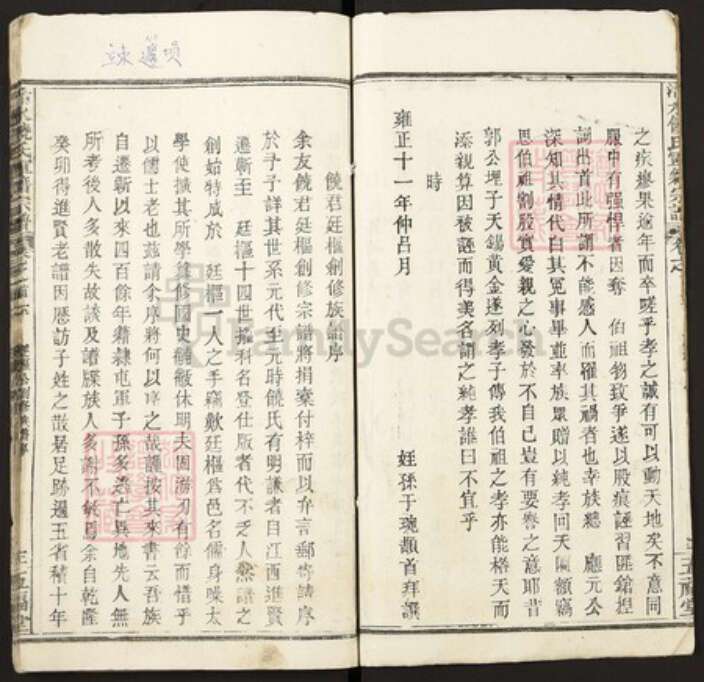 之疾瘳果逾年而卒嗟乎孝之誠有可以動天地矣不意同
服中有強悍者因奪 伯祖物致爭遂以股痕誣習匪鎗捏
詞出首此所謂不能感人而罹其禍者也幸族總 應元公
深知其情代白其冤事畢並率族眾贈以純孝回天匾額竊
思伯祖割股實愛親之心發於不自已豈有要譽之意耶昔
郭公埋子天錫黃金遂列孝子傳我伯祖之孝亦能格天而
添親算因被誣而得美名謂之純孝誰曰不宜乎
時
雍正十一年仲呂月
姪孫于琬顙首拜譔
饒君廷樞創修族譜序
余友饒君廷樞創修宗譜將捐棗付梓而以弁言郵寄請序
於予予詳其世系元代至元時饒氏有明謙者自江西進賢
遷蘄至 廷樞十四世擢科名登仕版者代不乏人然譜之
創始特成於 廷樞一人之手竊歎廷樞爲邑名儒身噪太
學使擴其所學 修國史 休明夫固游刃有餘而惜乎
以儒士老也茲請余序將何以序之哉謹按其來書云吾族
自遷蘄以來四百餘年籍隸屯軍子孫多逃亡異地先人無
所考後人多散失故談及譜牒族人多 不 焉余自乾隆
癸卯得進賢老譜因歷訪子姓之散居足跡遍五省積十年
五福堂
FamilySearch